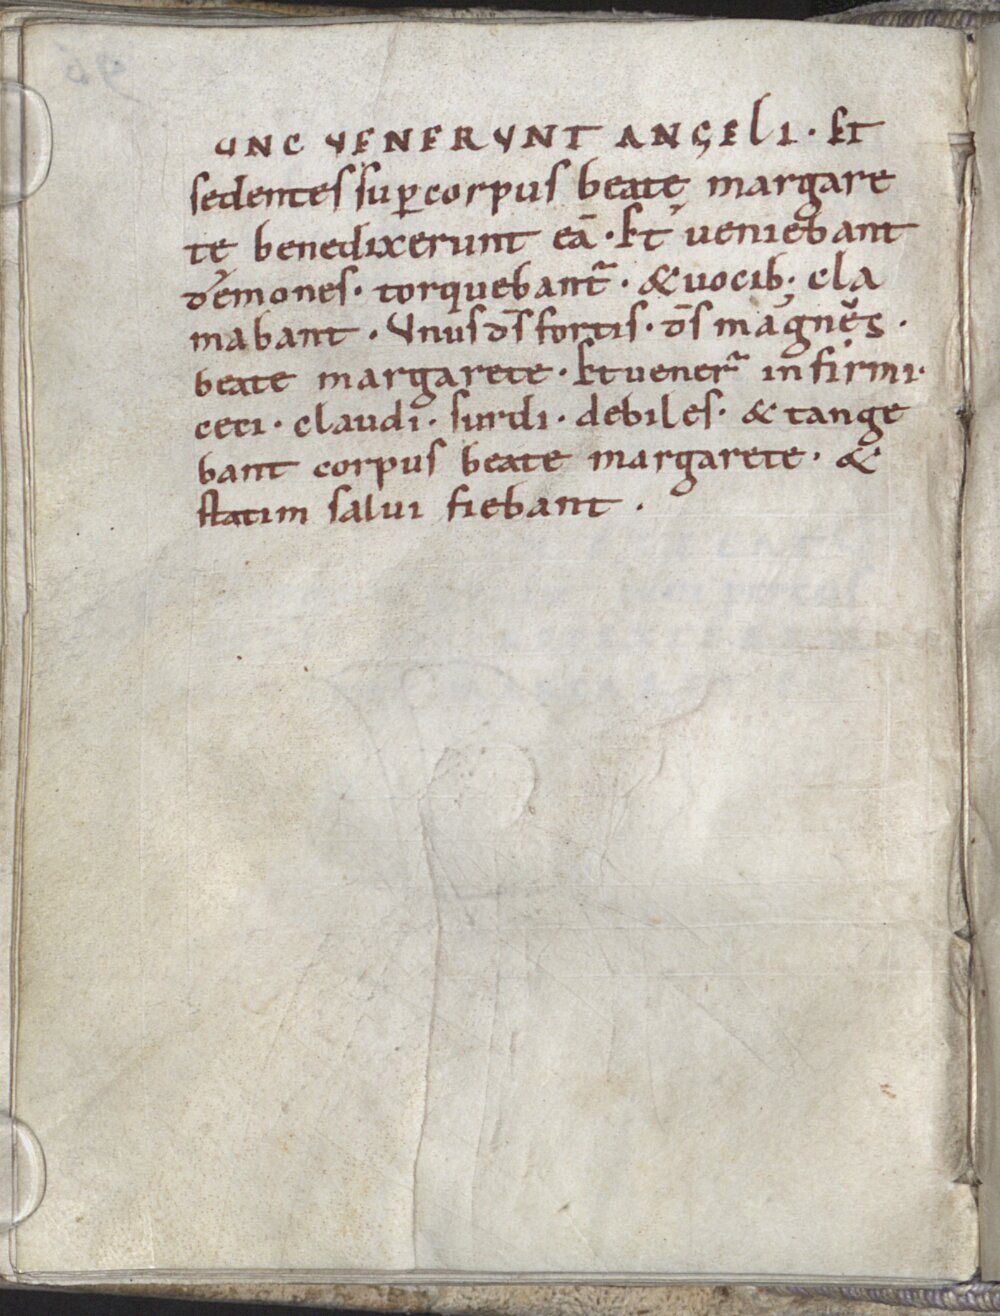 UNC VENERVNT ANGELI · Et
sedentes sup̱ corpus beatę margare
tę benedixerunt eā · Et ueniebant
demones · torquebant᷑ · & uocib; cla
mabant · Vnus d̄s fortis · d̄s magnęs ·
beate margarete · Et uener᷑ infirmi ·
ceci · claudi · surdi · debiles · & tange
bant corpus beate margarete · &
statim salui fiebant ·